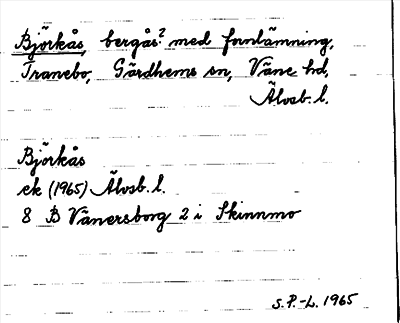 Björkås, bergås? med fornlämning,
Tranebo, Gärdhems sn, Väne hd,
Älvsb. l.
Björkås
ek (1965) Älvsb. l.
8 B Vänersborg 2 i Skinnmo
S.P.-L. 1965